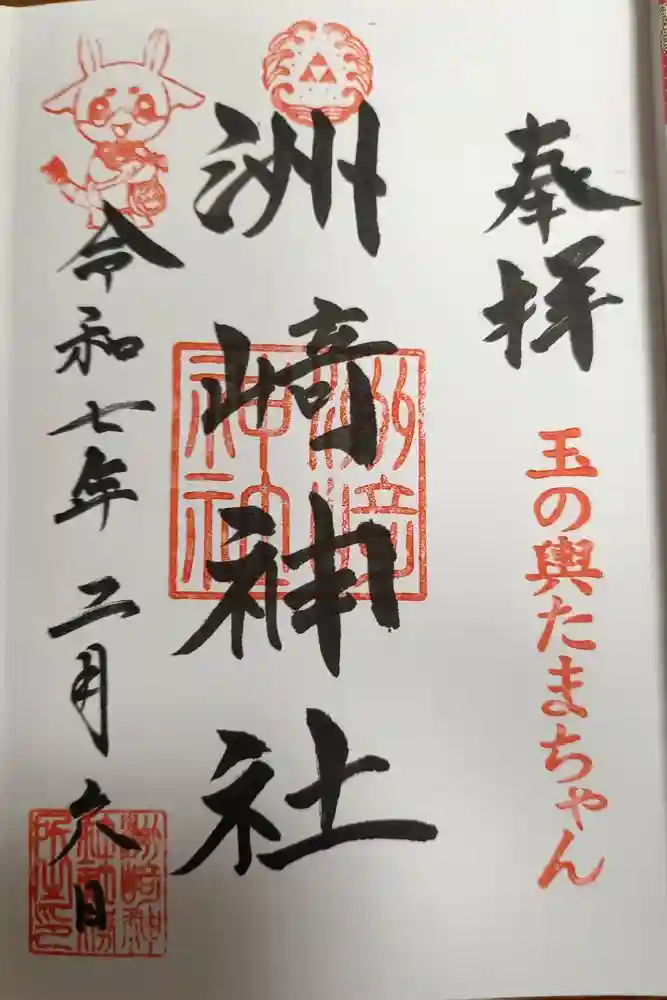 奉拝
玉の輿たまちゃん
洲崎神社
洲崎神社
令和七年二月六日